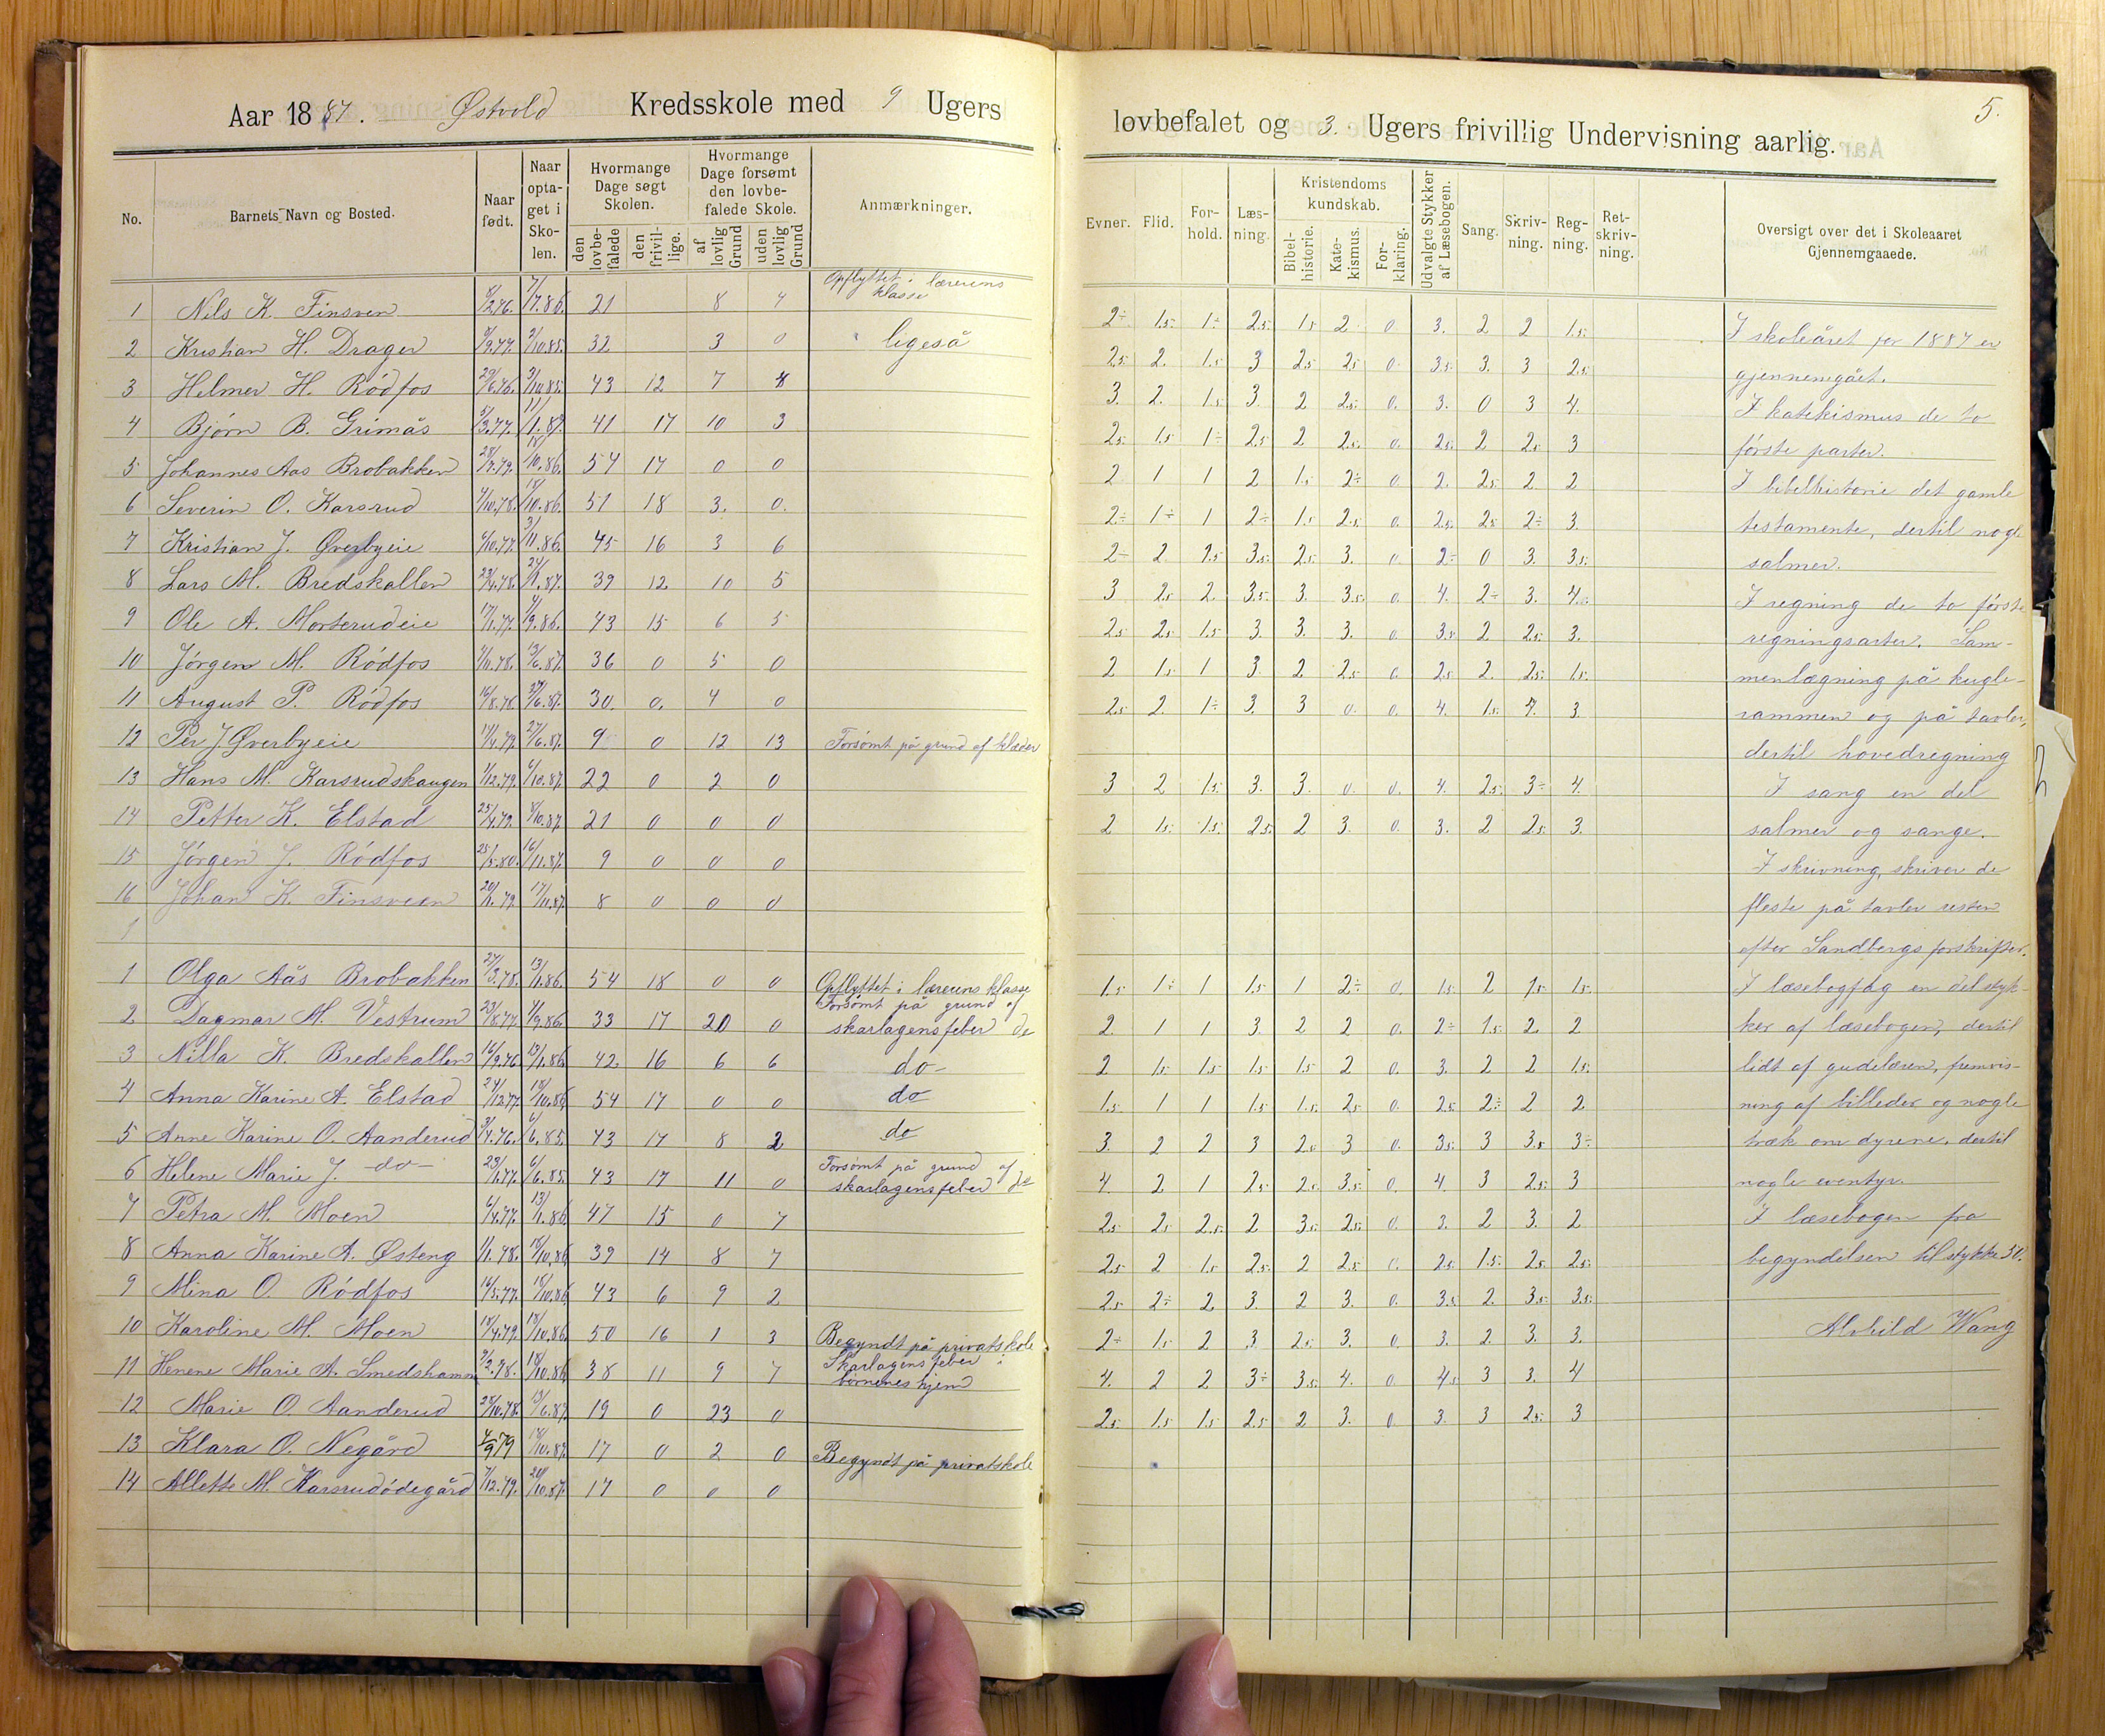 Aar 1887. Østvold Kredsskole med 9 Ugers
No. Barnets Navn og Bosted. Naar født. Naar optaget i Skolen. Hvormange Dage søgt Skolen. Hvormange Dage forsømt den lovbefalede Skole. Anmærkninger.
den lovbefalede den frivillige. af lovlig Grund uden lovlig Grund
1 Nils K. Finsven 21 8 4 Opflyttet i lærerens klasse
2 Kristian H. Drager 32 3 0 " ligeså
3 Helmer H. Rødfos 43 12 7 8
4 Bjørn B. Grimås 41 17 10 3
5 Johannes Aas Brobakken 54 17 0 0
6 Severin O. Karsrud 4/10.78. 18/10.86. 51 18 3. 0.
7 Kristian J. Øverbyeie 6/10.77. 3/11.86. 45 16 3 6
8 Lars M. Bredskallen 24/1.87. 39 12 10 5
9 Ole A. Morterudeie 17/1.77. 43 15 6 5
10 Jørgen M. Rødfos 13/6.87. 36 0 5 0
11 August P. Rødfos 16/8.78. 27/6.87. 30. 0. 4 0
12 Per J Øverbyeie 17/4.79. 27/6.87. 9 0 12 13 Forsømt på grund af klæder
13 Hans M. Karsrudskaugen 1/12.79. 6/10.87. 22 0 2 0
14 Petter K. Elstad 25/4.79. 8/10.87. 21 0 0 0
15 Jørgen J. Rødfos 25/5.80. 16/11.87. 9 0 0 0
16 Johan K. Finsveen 20/1.79. 17/11.87. 8 0 0 0
1
1 Olga Aås Brobakken 27/3.78. 13/1.86. 54 18 0 0 Opflyttet i lærerens klasse
2 Dagmar M. Vestrum 23/8.77. 4/9.86. 33 17 20 0 Forsømt på grund af skarlagensfeber do
3 Nilla K. Bredskallen 16/9.76. 13/1.86. 42 16 6 6 do-
4 Anna Karine A. Elstad 24/12.77. 18/10.86. 54 17 0 0 do
5 Anne Karine O. Aanderud 6/6.85. 43 17 8 2 do
6 Helene Marie J. -do- 23/1.77. 6/6.85. 43 17 11 0 Forsømt på grund af skarlagensfeber do
7 Petra M. Moen 6/4.77. 13/1.86. 47 15 0 7
8 Anna Karine A. Østeng 1/1.78. 18/10.86. 39 14 8 7
9 Mina O. Rødfos 16/5.77. 18/10.86. 43 6 9 2
10 Karoline M. Moen 18/4.79. 18/10.86. 50 16 1 3 Begyndt på privatskole
11 Henene Marie A. Smedshamm 18/10.86. 38 11 9 7 Skarlagensfeber i børnenes hjem
12 Marie O. Aanderud 28/10.78. 13/6.87. 19 0 23 0
13 Klara O. Negård 4/9 79 18/10.87. 17 0 2 0 Begyndt på privatskole
14 Allette M. Karsrudødegård 7/12.79. 20/10.87. 17 0 0 0
5.
lovbefalet og 3. Ugers frivillig Undervisning aarlig.
Evner. Flid. Forhold. Læsning. Kristendomskundskab. Udvalgte Stykker af Læsebogen. Sang. Skrivning. Regning. Retskrivning. Oversigt over det i Skoleaaret Gjennemgaaede.
Bibelhistorie. Katekismus. Forklaring.
2÷ 1.5. 1÷ 2.5. 1.5 2 0 3. 2 2 1.5.
2.5 2. 1.5 3 2.5 2.5 0 3.5. 3. 3 2.5.
3. 2. 1.5 3. 2 2.5. 0. 3. 0 3 4.
2.5 1.5 1÷ 2.5 2 2.5. 0. 2.5. 2 2.5 3
2 1 1 2 1.5 2÷ 0 2. 2.5 2 2
2÷ 1÷ 1 2÷ 1.5 2.5 0. 2.5. 2.5 2÷ 3
2÷ 2 2.5 3.5. 2.5 3. 0 2÷ 0 3. 3.5.
3 2.5 2. 3.5. 3. 3.5. 0. 4. 2÷ 3. 4.
2.5 2.5 1.5 3. 3. 3. 0 3.5 2 2.5 3.
2 1.5 1 3 2 2.5 0. 2.5 2. 2.5. 1.5.
2.5 2. 1÷ 3. 3 0 0. 4. 1.5. 4. 3
3 2 1.5. 3. 3. 0. 0. 4. 2.5. 3÷ 4.
2 1.5. 1.5. 2.5. 2 3. 0. 3. 2 2.5 3.
1.5 1÷ 1 1.5 1 2÷ 0. 1.5 2 1.5 1.5.
2. 1 1 3. 2 2 0. 2÷ 1.5. 2. 2
2 1.5 1.5 1.5 1.5 2 0. 3. 2 2 1.5.
1.5. 1 1 1.5 1.5. 2.5 0. 2.5 2÷ 2 2
3. 2 2 3 2.5 3 0. 3.5. 3 3.5 3÷
4. 2 1 2.5 2.5 3.5. 0. 4. 3 2.5. 3
2.5 2.5 2.5. 2 3.5. 2.5. 0. 3. 2 3. 2
2.5 2 1.5 2.5. 2 2.5 0. 2.5 1.5. 2.5 2.5.
2.5 2÷ 2. 3 2 3. 0. 3.5 2. 3.5. 3.5.
2÷ 1.5 2 3 2.5 3. 0 3. 2 3. 3.
4. 2 2 3÷ 3.5. 4. 0. 4.5 3 3. 4
2.5 1.5 1.5 2.5 2 3. 0. 3. 3 2.5. 3
I skoleåret for 1887 er
gjennemgået.
I katekismus de to
første parter.
I bibelhistorie det gamle
testamente, dertil nogle
salmer.
I regning de to første
regningsarter. Sam-
menlægning på kugle-
rammen og på tavler,
dertil hovedregning
I sang en del
salmer og sange.
I skrivning, skriver de
fleste på tavler resten
efter Sandbergs forskrifter.
I læsebogfag en del styk-
ker af læsebogen, dertil
lidt af gudelæren, fremvis-
ning af billeder og nogle
træk om dyrene, dertil
nogle eventyr.
I læsebogen fra
begyndelsen til stykke 50.
Alvhild Wang